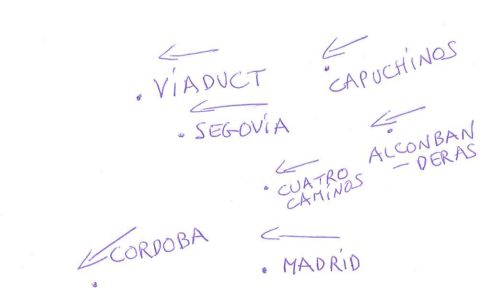 VIADUCT
CAPUCHINOS
SEGOVIA
ALCONBAN
- DERAS
CUATRO
CAMINOS
CORDOBA
MADRID